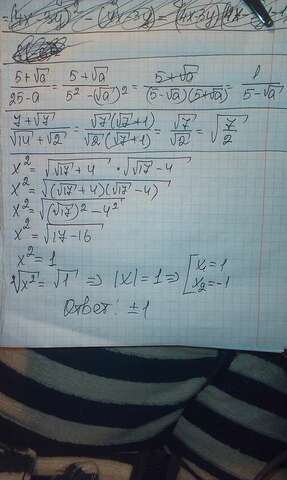 (5+√a)/(25-a) = (5+√a)/(5²-(√a)²) = (5+√a)/((5-√a)(5+√a)) = 1/(5-√a)
(7+√7)/(√14+√2) = (√7(√7+1))/(√2(√7+1)) = √7/√2 = √(7/2)
x² = √(√17+4) · √(√17-4)
x² = √((√17+4)(√17-4))
x² = √((√17)²-4²)
x² = √(17-16)
x² = 1
²√x² = √1 ⇒ |x| = 1 ⇒ [x₁=1
x₂=-1
Ответ: ±1